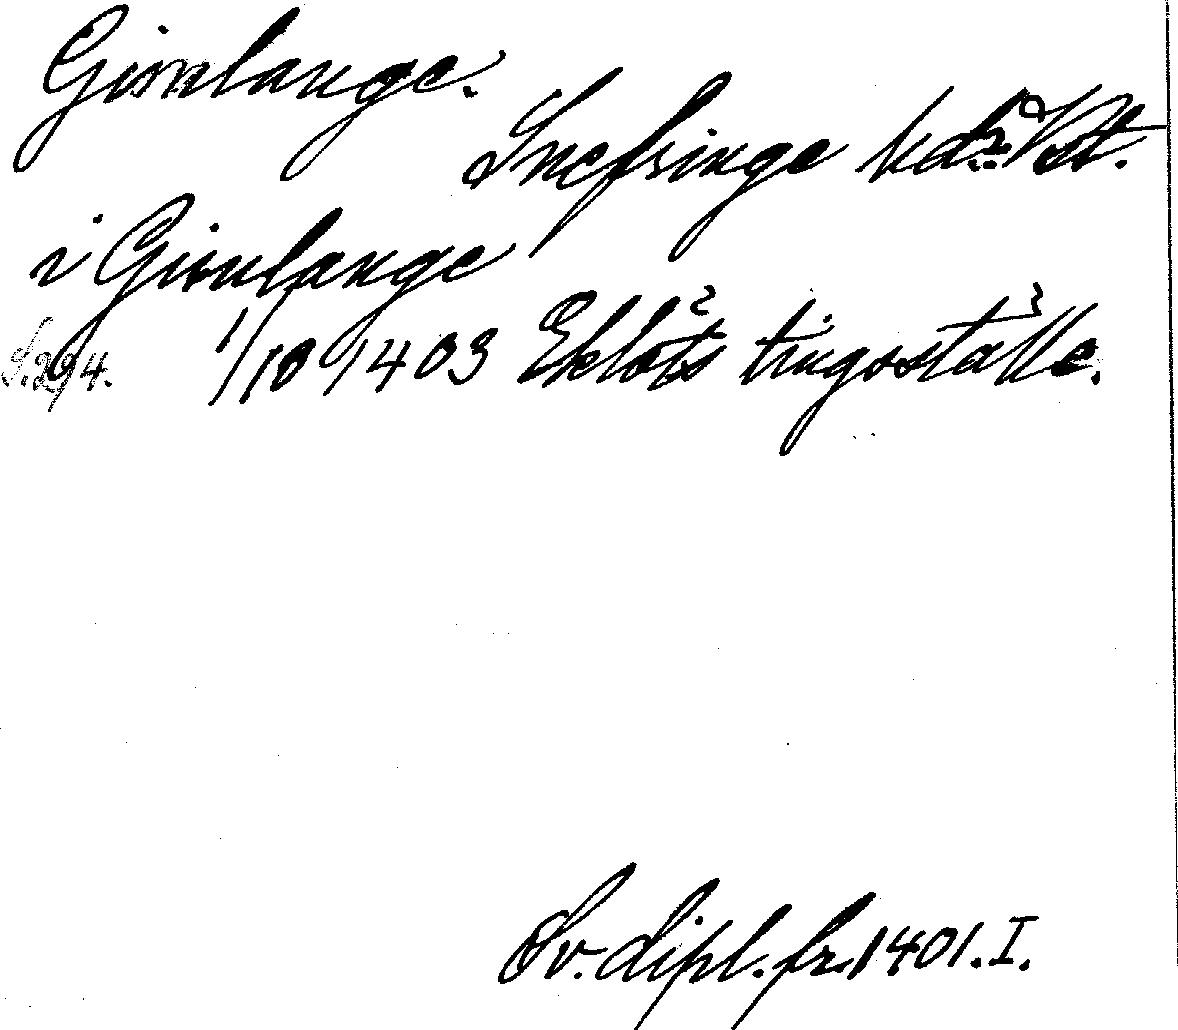 Gimlange.
Snefringe hd. Vstm.
i Gimlange
S. 294. 1/10 1403 Eklöfs tingsställe.
Sv. dipl. fr. 1401. I.